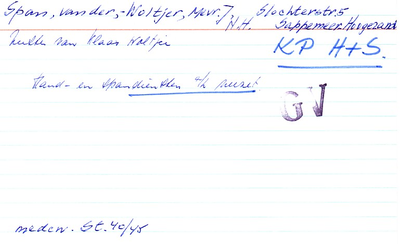 Spass, van der, -Woltjer, Mevr. J,
N.H. Slochterstr. 5
Sappemeer-Hoogezand
KP H+S.
zuster van Klaas Woltjer
Hand- en spandiensten a/h verzet
GV
medew. St. 40/45